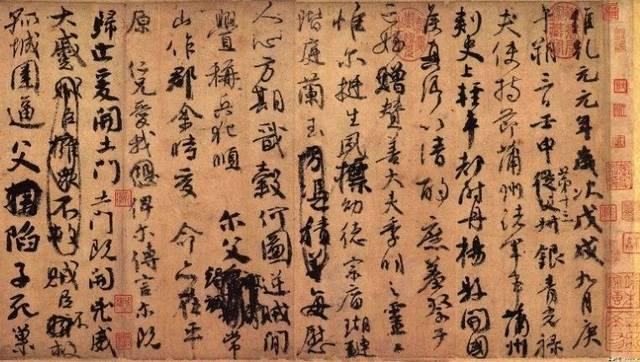 維乾元元年歲次戊戌九月庚
午朔三日壬申第十三叔銀青光祿
夫使持節蒲州諸軍事蒲州
刺史上輕車都尉丹楊縣開國
侯真卿以清酌庶羞祭于
亡姪贈贊善大夫季明之靈曰
惟爾挺生夙標幼德宗廟瑚璉
階庭蘭玉方憑積善每慰
人心方期戩穀何圖逆賊閒
釁稱兵犯順爾父竭誠常
山作郡余時受命亦在平
原仁兄愛我俾爾傳言爾既
歸止爰開土門土門既開凶威
大蹙賊臣擁眾不救賊臣不救
孤城圍逼父陷子死巢